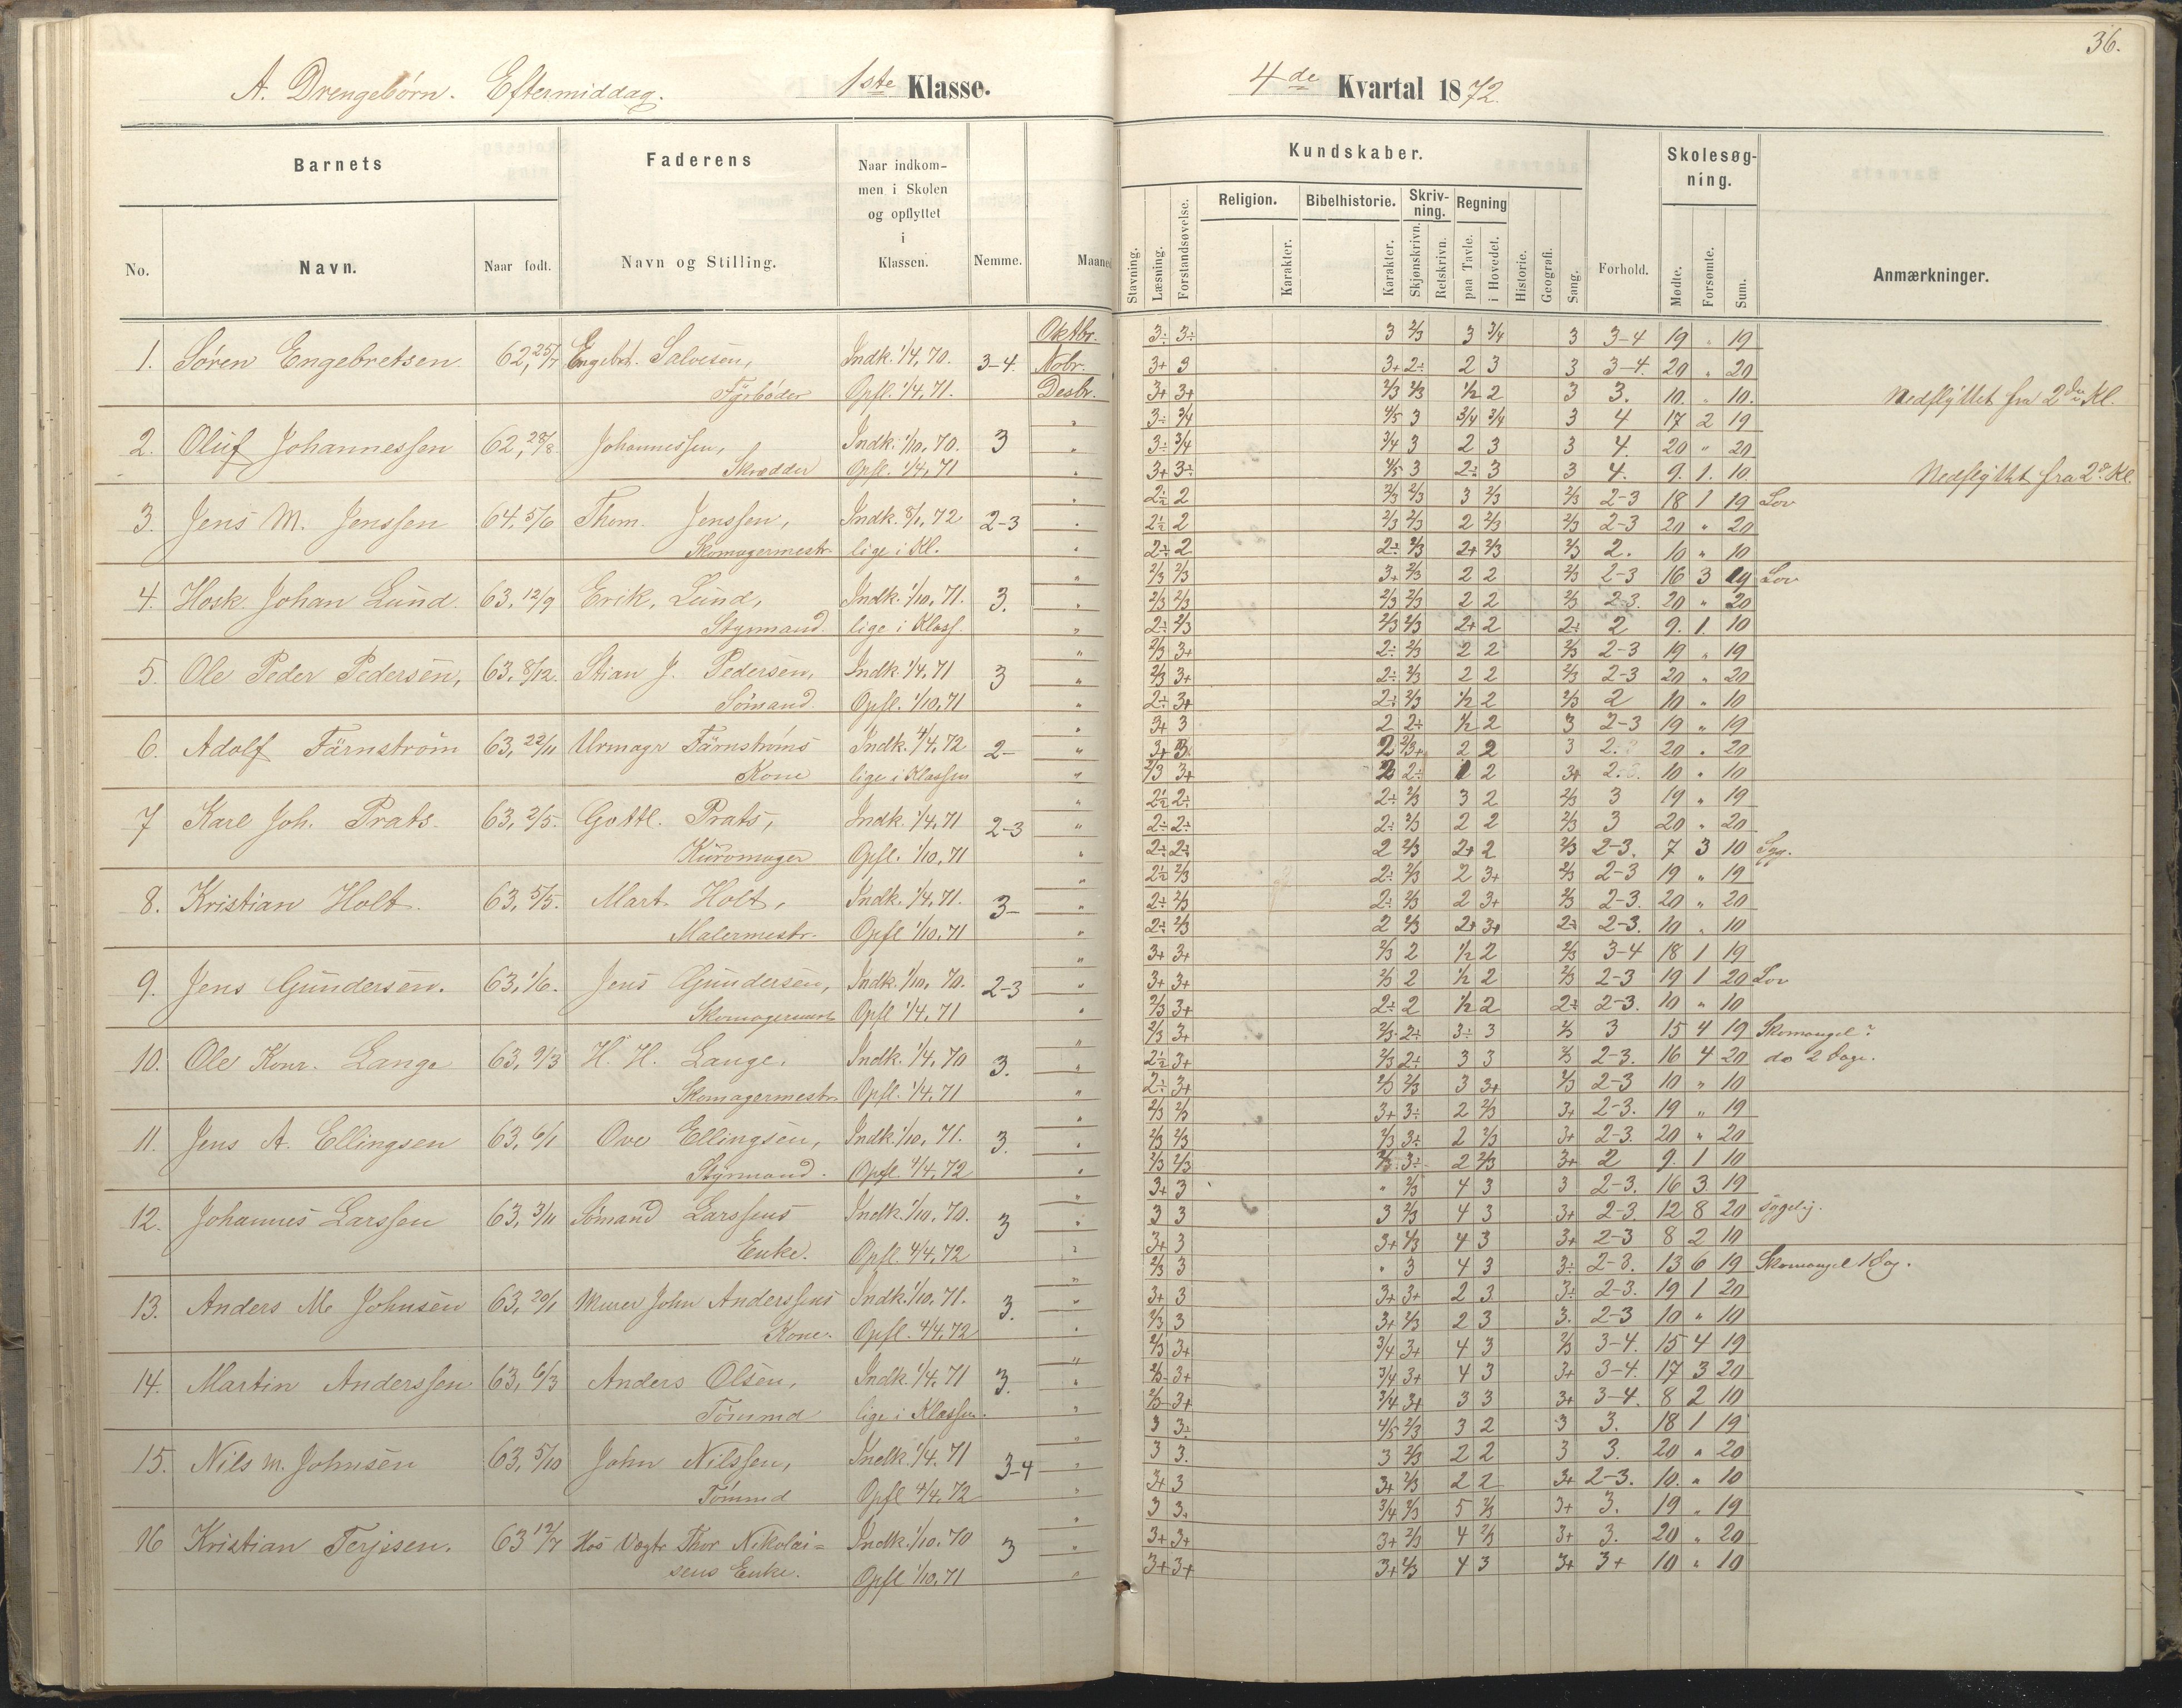 36.
A. Drengebørn. Eftermiddag. 1ste Klasse. 4de Kvartal 1872.
Barnets Faderens Naar indkommen i Skolen og opflyttet i Klassen. Nemme. Maaned Kundskaber. Skolesøgning.
No. Navn. Naar født. Navn og Stilling. Stavning. Læsning. Forstandsøvelse. Religion. Karakter. Bibelhistorie. Karakter. Skrivning. Skjønskrivn. Retskrivn. Regning paa Tavle. i Hovedet. Historie. Geografi. Sang. Forhold. Mødte. Forsømte. Sum. Anmærkninger.
Oktbr. 3÷ 3÷ 3 2/3 3 3/4 3 3-4 19 " 19
1. Søren Engebretsen 62, 25/7 Engebrt. Salvesen, Indk. 1/4, 70. 3-4. Nobr. 3+ 3 3+ 2÷ 2 3 3 3-4. 20 " 20
Fyrbøder Opfl. 1/4, 71. Desbr. 3+ 3+ 2/3 2/3 1/2 2 3 3. 10. " 10. Nedflyttet fra 2den Kl.
" 3÷ 3/4 4/5 3 3/4 3/4 3 4 17 2 19
2. Oluf Johannessen 62, 28/8 Johannessen, Indk. 1/10, 70. 3 " 3÷ 3/4 3/4 3 2 3 3 4. 20 " 20
Skrædder Opfl. 1/4, 71 " 3+ 3÷ 4/5 3 2÷ 3 3 4. 9. 1. 10 Nedflyttet fra 2d Kl.
" 2½ 2 2/3 2/3 3 2/3 2/3 2-3 18 1 19 Lov
3. Jens M. Jenssen 64, 5/6 Thom. Jenssen, Indk. 8/1, 72 2-3 " 2½ 2 2/3 2/3 2 2/3 2/3 2-3 20 " 20
Skomagermestr. lige i Kl. " 2÷ 2 2÷ 2/3 2+ 2/3 2/3 2. 10 " 10
" 2/3 2/3 3+ 2/3 2 2 2/3 2-3 16 3 19 Lov
4. Hosk. Johan Lund. 63, 12/9 Erik, Lund, Indk. 1/10, 71. 3. " 2/3 2/3 2/3 2/3 2 2 2/3 2-3. 20 " 20
Styrmand. lige i Klass. " 2÷ 2/3 2/3 2/3 2+ 2 2÷ 2 9. 1. 10
" 2/3 3+ 2÷ 2/3 2 2 2/3 2-3 19 " 19
5. Ole Peder Pedersen, 63, 8/12. Stian J. Pedersen, Indk. 1/4, 71 3 " 2/3 3+ 2÷ 2/3 2 2 2/3 2-3 20 " 20
Sømand. Opfl. 1/10, 71 " 2÷ 3+ 2÷ 2/3 1/2 2 2/3 2 10 " 10
" 3+ 3 2 2÷ 1/2 2 3 2-3 19 " 19
6. Adolf Färnström 63, 22/11 Urmagr Färnströms Indk. 4/4, 72 2- " 3+ 3. 2 2/3+ 2 2 3 2.3 20 " 20
Kone lige i Klassen " 2/3 3+ 2 2÷ 2 2 3+ 2.3. 10 " 10
" 2½ 2÷ 2÷ 2/3 3 2 2/3 3 19 " 19
7 Karl Joh. Prats. 63, 2/5. Gottl. Prats, Indk. 1/4, 71 2-3 " 2÷ 2÷ 2÷ 2/3 2 2 2/3 3 20 " 20
Kurvmager Opfl. 1/10, 71 " 2÷ 2÷ 2 2/3 2+ 2 2/3 2-3. 7 3 10 Syg.
" 2½ 2/3 2÷ 2/3 2 3+ 2/3 2-3 19 " 19
8. Kristian Holt. 63, 5/5. Mart. Holt, Indk. 1/4, 71. 3- " 2÷ 2/3 2÷ 2/3 2 3+ 2/3 2-3. 20 " 20
Malermestr. Opfl 1/10, 71 " 2÷ 2/3 2 2/3 2+ 3+ 2÷ 2-3. 10 " 10
" 3+ 3+ 2/3 2 1/2 2 2/3 3-4 18 1 19
9. Jens Gundersen. 63, 1/6. Jens Gundersen, Indk. 1/10, 70. 2-3 " 3+ 3+ 2/3 2 1/2 2 2/3 2-3 19 1 20 Lov
Skomagermest. Opfl 1/4, 71 " 2/3 3+ 2÷ 2 1/2 2 2÷ 2-3. 10 " 10
" 2/3 3+ 2/3 2÷ 3÷ 3 2/3 3 15 4 19 Skomangel?
10. Ole Konr. Lange 63, 9/3 H. H. Lange. Indk. 1/4, 70 3. " 2½ 3+ 2/3 2÷ 3 3 2/3 2-3. 16 4 20 do 2 Dage.
Skomagermestr. Opfl. 1/4, 71 " 2÷ 3+ 2/3 2/3 3 3+ 2/3 2-3 10 " 10
" 2/3 2/3 3+ 3÷ 2 2/3 3+ 2-3. 19 " 19
11. Jens A. Ellingsen 63, 6/1 Ove Ellingsen, Indk. 1/10, 71. 3. " 2/3 2/3 2/3 3÷ 2 2/3 3+ 2-3. 20 " 20
Styrmand. Opfl. 4/4, 72 " 2/3 2/3 2/3 3÷ 2 2/3 3+ 2 9. 1 10
" 3+ 3 " 2/3 4 3 3 2-3. 16 3 19
12. Johannes Larssen 63, 3/11 Sømand Larssens Indk. 1/10, 70. 3 " 3 3 3 2/3 4 3 3+ 2-3. 12 8 20 sygelig.
Enke. Opfl. 4/4, 72 " 3+ 3 3+ 2/3 4 3 3+ 2-3 8 2 10
" 2/3 3 " 3 4 3 3÷ 2-3. 13 6 19 Skomangel 1 Dag.
13. Anders M. Johnsen 63, 20/1 Murer John Anderssens Indk. 1/10, 71. 3. " 3+ 3 3+ 3+ 2 3 3÷ 2-3. 19 1 20
Kone. Opfl. 4/4, 72 " 2/3 3 3+ 2/3 2 3 3. 2-3 10 " 10
" 2/3 3+ 3/4 3+ 4 3 2/3 3-4. 15 4 19
14. Martin Anderssen 63, 6/3 Anders Olsen, Indk. 1/4, 71 3. " 2/3 3+ 3/4 3+ 4 3 3+ 3-4. 17 3 20
Tømmd lige i Klassen. " 2/3 3+ 3/4 3+ 3 3 3+ 3-4. 8 2 10
" 3 3÷ 4/5 2/3 3 2 3 3. 18 1 19
15. Nils M. Johnsen 63, 5/10 John Nilssen, Indk. 1/4, 71 3-4 " 3 3. 3 2/3 2 2 3 3. 20 " 20
Tømmd Opfl 4/4, 72 " 3+ 3 3+ 2/3 2 2 3+ 2-3. 10. " 10
" 3 3. 3/4 2/3 5 2/3 3+ 3. 19 " 19
16 Kristian Terjesen. 63 12/7 Hos Vægtr Thor Nikolai= Indk. 1/10. 70 3 " 3+ 3+ 3+ 2/3 4 2/3 3+ 3. 20 " 20
sens Enke. Opfl 1/10, 71 " 3+ 3+ 3+ 2/3 4 3 3+ 3+ 10 " 10